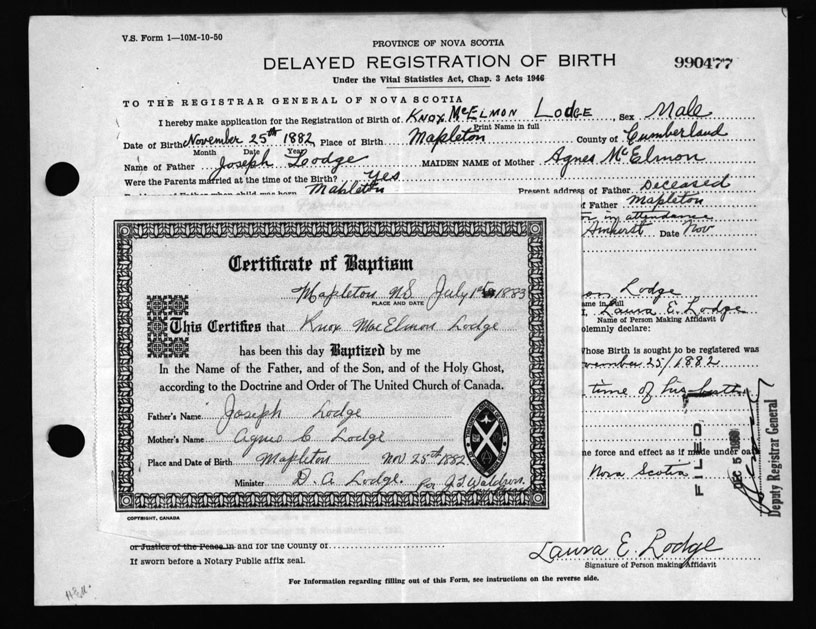 V.S. Form 1—10M-10-50
PROVINCE OF NOVA SCOTIA
DELAYED REGISTRATION OF BIRTH
990477
Under the Vital Statistics Act, Chap. 3 Acts 1946
TO THE REGISTRAR GENERAL OF NOVA SCOTIA
I hereby make application for the Registration of Birth of Knox McElmon Lodge, Sex Male
Print Name in full
Date of Birth November 25th 1882 Place of Birth Mapleton County of Cumberland
Month Date Year
Name of Father Joseph Lodge MAIDEN NAME of Mother Agnes McElmon
Were the Parents married at the time of the Birth? Yes
Present address of Father Deceased
Mapleton
f Father Mapleton
in attendance
Amherst Date Nov
Certificate of Baptism
Mapleton N.S. July 1st 1883
PLACE AND DATE
This Certifies that Knox MacElmon Lodge
has been this day Baptized by me
In the Name of the Father, and of the Son, and of the Holy Ghost,
according to the Doctrine and Order of The United Church of Canada.
Father's Name Joseph Lodge
Mother's Name Agnes C Lodge
Place and Date of Birth Mapleton Nov 25th 1882
Minister D. A. Lodge.
COPYRIGHT, CANADA
on Lodge
me in full
Laura E. Lodge
Name of Person Making Affidavit
olemnly declare:
hose Birth is sought to be registered was
vember 25/1882
time of his birth
e force and effect as if made under oath
Nova Scotia
FILED
DEC 5
Deputy Registrar General
or Justice of the Peace in and for the County of
If sworn before a Notary Public affix seal.
Laura E. Lodge
Signature of Person making Affidavit
For Information regarding filling out of this Form, see instructions on the reverse side.